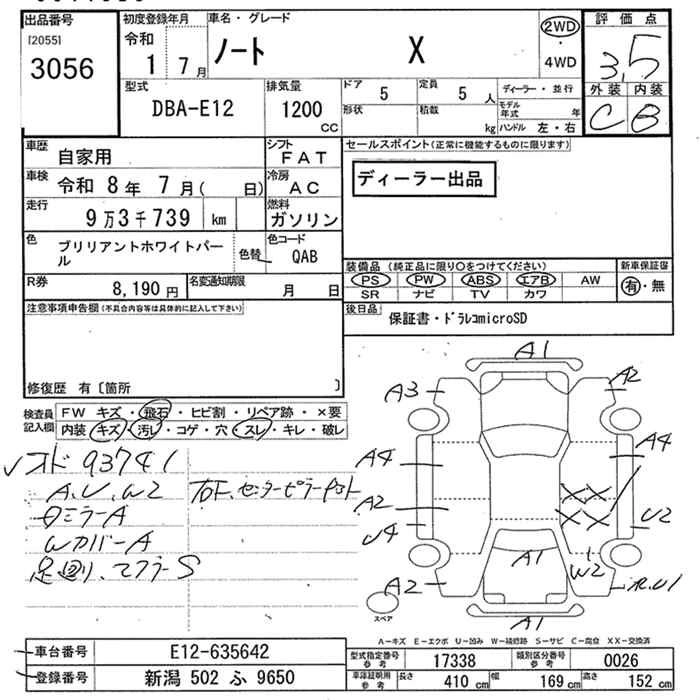 出品番号
[2055]
3056
初度登録年月
令和
1 7月
車名・グレード
ノート X
2WD
・
4WD
評価点
3.5
外装 内装
C B
型式
DBA-E12
排気量
1200 cc
ドア 5
定員 5 人
形状
積載 kg
ディーラー・並行
モデル年式 年
ハンドル 左・右
車歴
自家用
シフト
FAT
車検
令和 8年 7月( 日)
冷房
AC
走行
9万3千739 km
燃料
ガソリン
色
ブリリアントホワイトパール
色替
色コード
QAB
R券
8,190 円
名変通知期限
月 日
セールスポイント(正常に機能するものに限ります)
ディーラー出品
装備品 (純正品に限り○をつけてください)
PS PW ABS エアB AW
SR ナビ TV カワ
新車保証書
有・無
後日品
保証書・ドラレコmicroSD
注意事項申告欄(不具合内容等は具体的に記入して下さい)
修復歴 有〔箇所 〕
検査員記入欄
FW キズ・飛石・ヒビ割・リペア跡・×要
内装 キズ・汚レ・コゲ・穴・スレ・キレ・破レ
オド 93741
A.U.W2
ミラーA
Wカバー A
足廻り、マフラーS
A1
A3 A2
A4 A4
A2
U4 U2
XX
XX
A1
W2
A2
A1
スペア
A-キズ E-エクボ U-凹み W-補修跡 S-サビ C-腐食 XX-交換済
車台番号 E12-635642
登録番号 新潟 502 ふ 9650
型式指定番号 参考 17338
類別区分番号 参考 0026
車庫証明用 参考 長さ 410 cm 幅 169 cm 高さ 152 cm